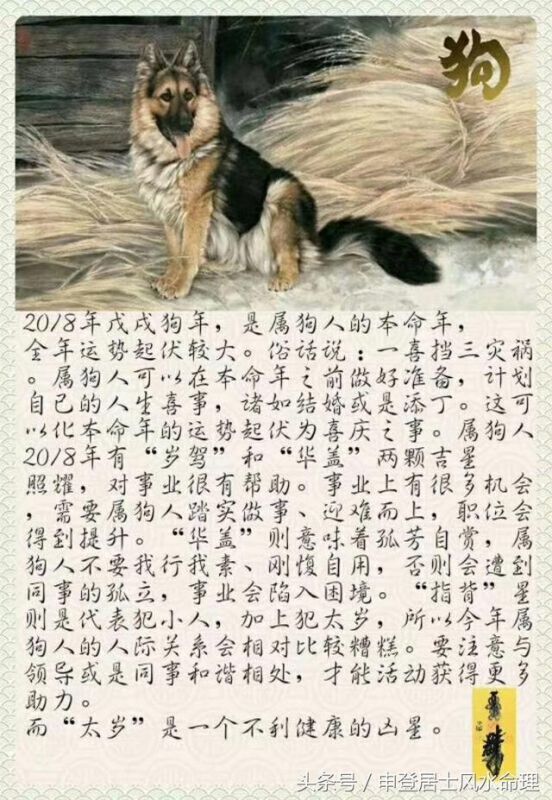 狗
2018年戊戌狗年，是属狗人的本命年，
全年运势起伏较大。俗话说：一喜挡三灾祸
。属狗人可以在本命年之前做好准备，计划
自己的人生喜事，诸如结婚或是添丁。这可
以化本命年的运势起伏为喜庆之事。属狗人
2018年有“岁驾”和“华盖”两颗吉星
照耀，对事业很有帮助。事业上有很多机会
，需要属狗人踏实做事、迎难而上，职位会
得到提升。“华盖”则意味着孤芳自赏，属
狗人不要我行我素、刚愎自用，否则会遭到
同事的孤立，事业会陷入困境。“指背”星
则是代表犯小人，加上犯太岁，所以今年属
狗人的人际关系会相对比较糟糕。要注意与
领导或是同事和谐相处，才能活动获得更多
助力。
而“太岁”是一个不利健康的凶星。
头条号／申登居士风水命理